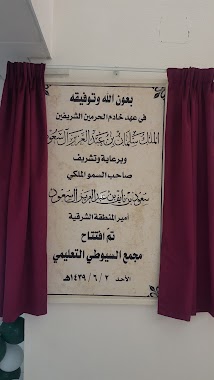 بعون الله وتوفيقه
في عهد خادم الحرمين الشريفين
الملك سلمان بن عبد العزيز آل سعود
وبرعاية وتشريف
صاحب السمو الملكي
سعود بن نايف بن عبد العزيز آل سعود
أمير المنطقة الشرقية
تم افتتاح
مجمع السيوطي التعليمي
الأحد ٢ / ٦ / ١٤٣٩هـ